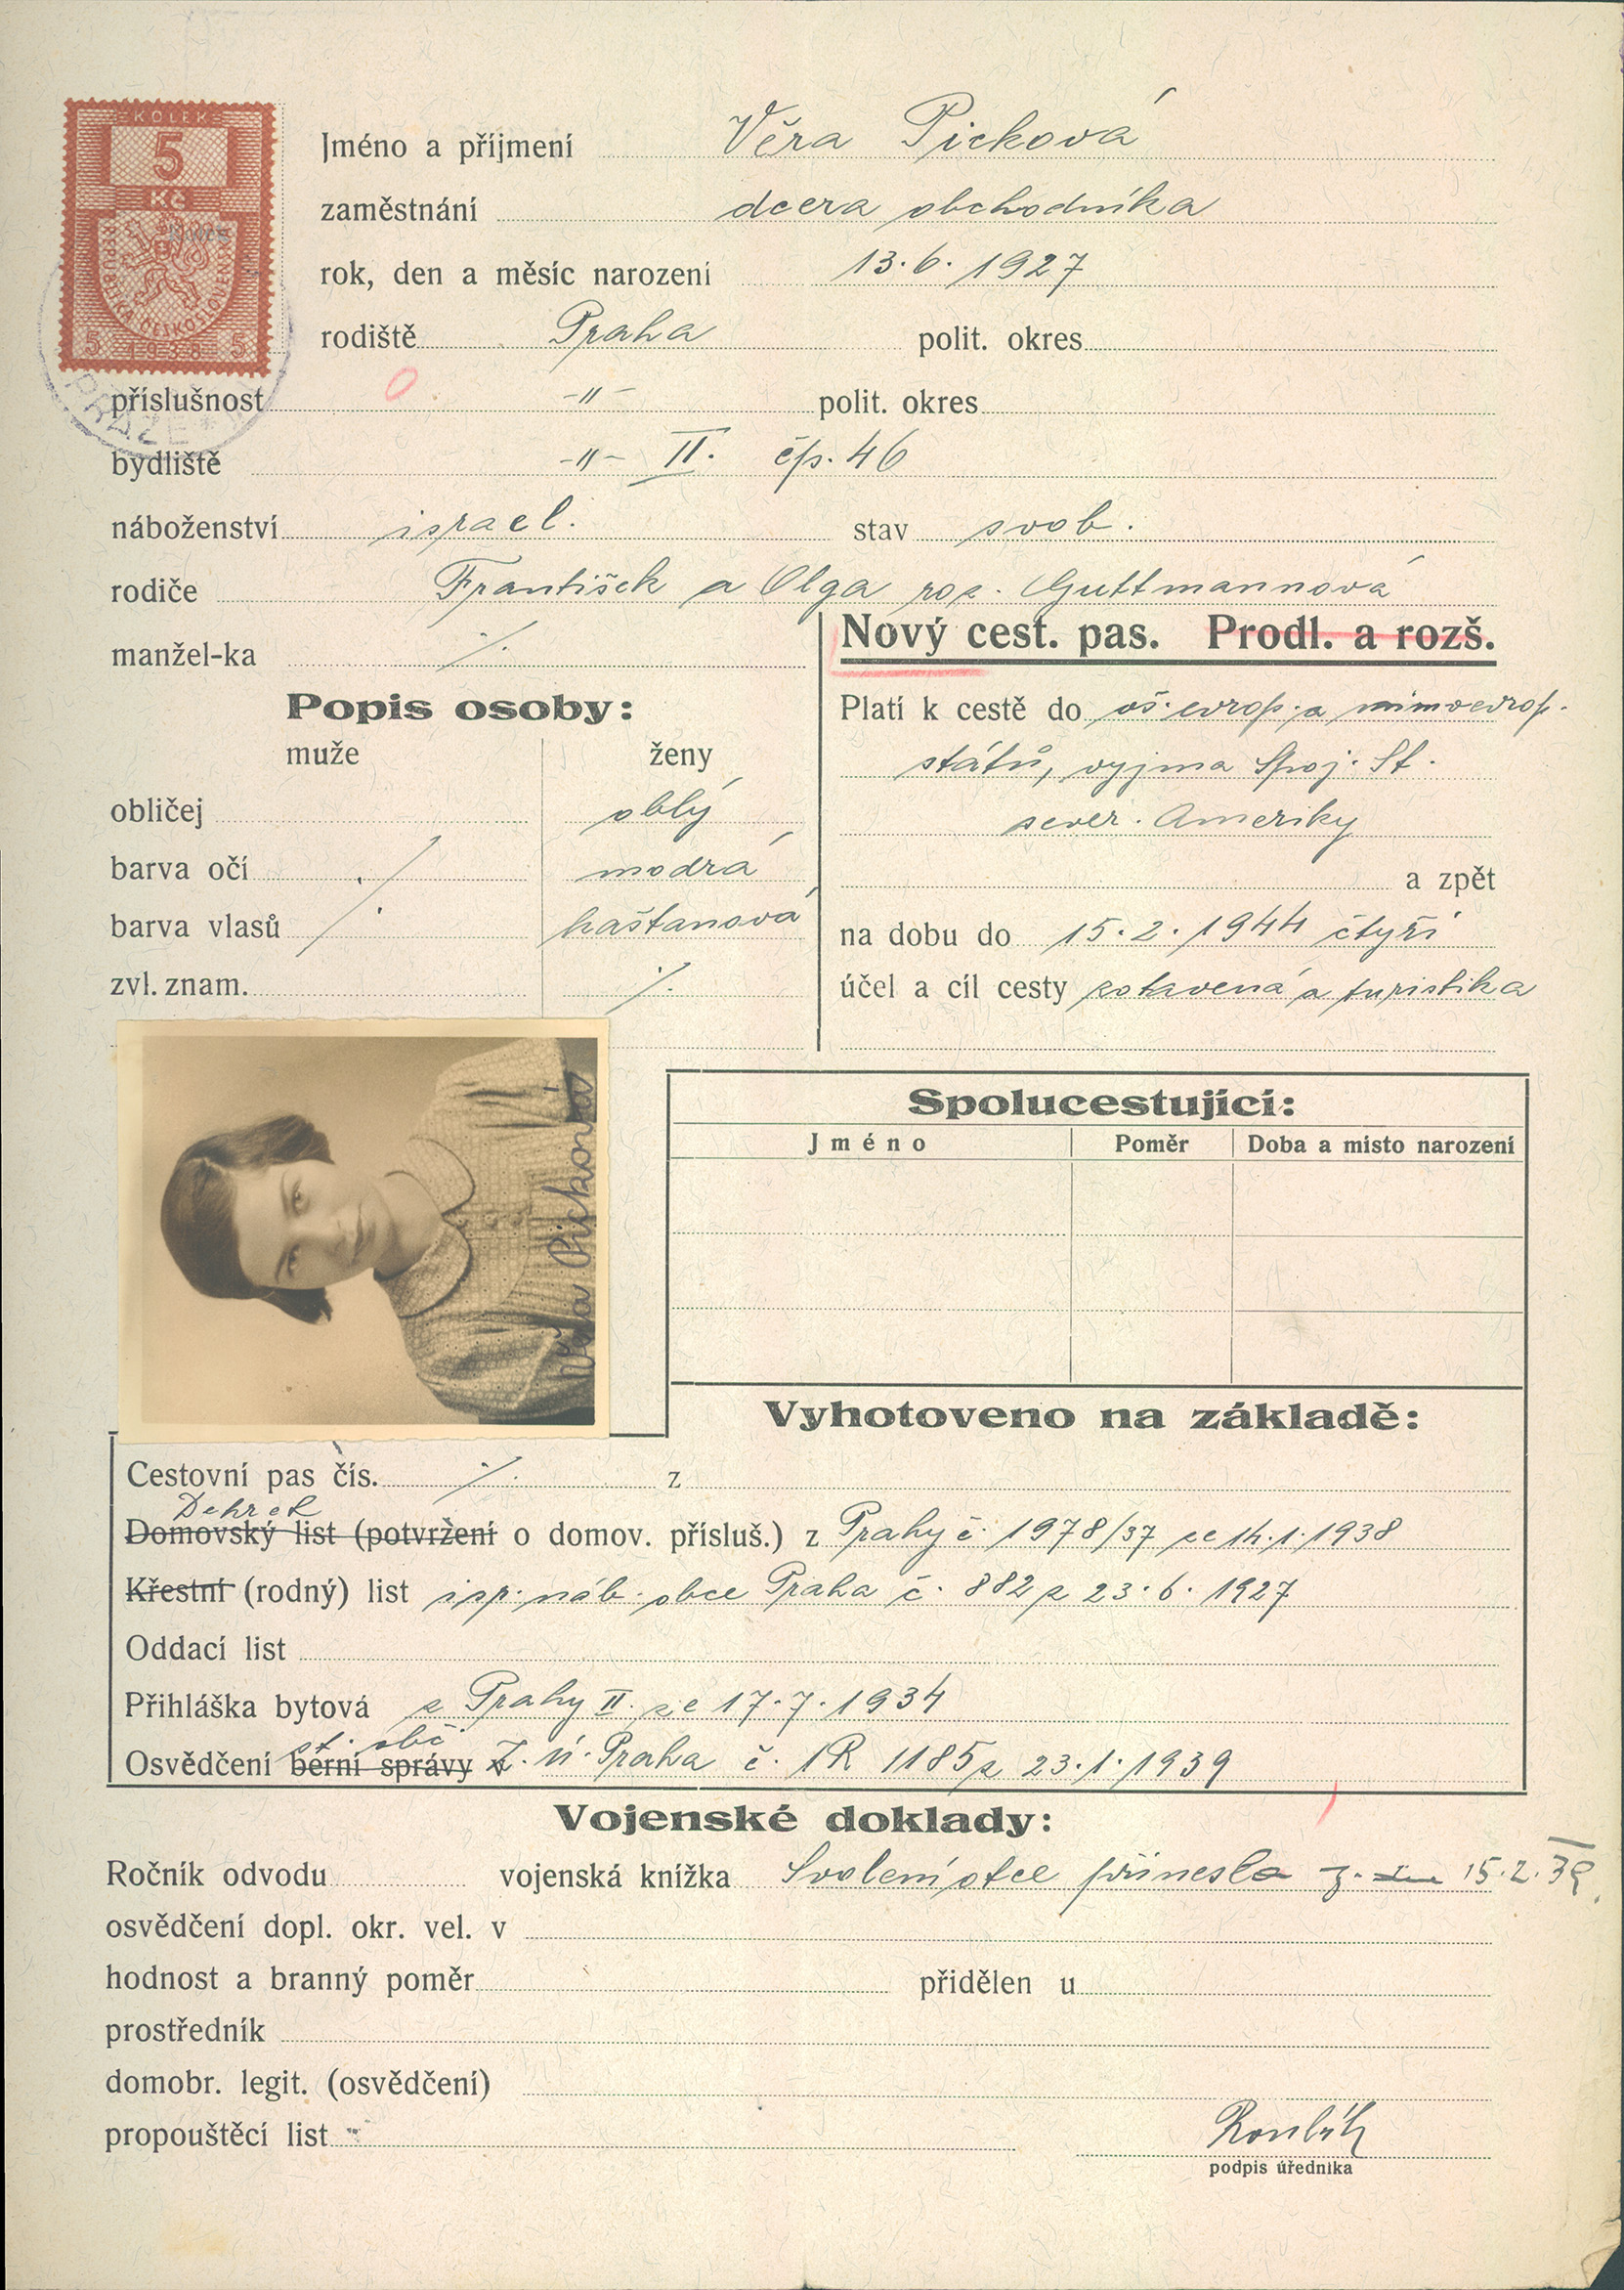 KOLEK
5
Kč
REPUBLIKA ČESKOSLOVENSKÁ
5 1938 5
PRAZE *
Jméno a příjmení Věra Picková
zaměstnání dcera obchodníka
rok, den a měsíc narození 13.6.1927
rodiště Praha polit. okres
příslušnost -"- polit. okres
bydliště -"- II. čp. 46
náboženství israel. stav svob.
rodiče František a Olga roz. Guttmannová
manžel-ka ./.
Nový cest. pas. Prodl. a rozš.
Popis osoby:
muže ženy
obličej oblý
barva očí ./. modrá
barva vlasů kaštanová
zvl. znam. ./.
Platí k cestě do vš. evrop. a mimoevrop.
států, vyjma Spoj. St.
sever. Ameriky
a zpět
na dobu do 15.2.1944 čtyři
účel a cíl cesty zotavená a turistika
Věra Picková
Spolucestující:
Jméno Poměr Doba a místo narození
Vyhotoveno na základě:
Cestovní pas čís. ./. z
Dekret
Domovský list (potvržení o domov. přísluš.) z Prahy č. 1978/37 ze 14.1.1938
Křestní (rodný) list isr. náb. obce Praha č. 882 z 23.6.1927
Oddací list
Přihláška bytová z Prahy II. ze 17.7.1934
st. obč.
Osvědčení berní správy v Z. ú. Praha č. 1R 1185 z 23.1.1939
Vojenské doklady:
Ročník odvodu vojenská knížka Svolení otce přinesla 15.2.39
osvědčení dopl. okr. vel. v
hodnost a branný poměr přidělen u
prostředník
domobr. legit. (osvědčení)
propouštěcí list
podpis úředníka